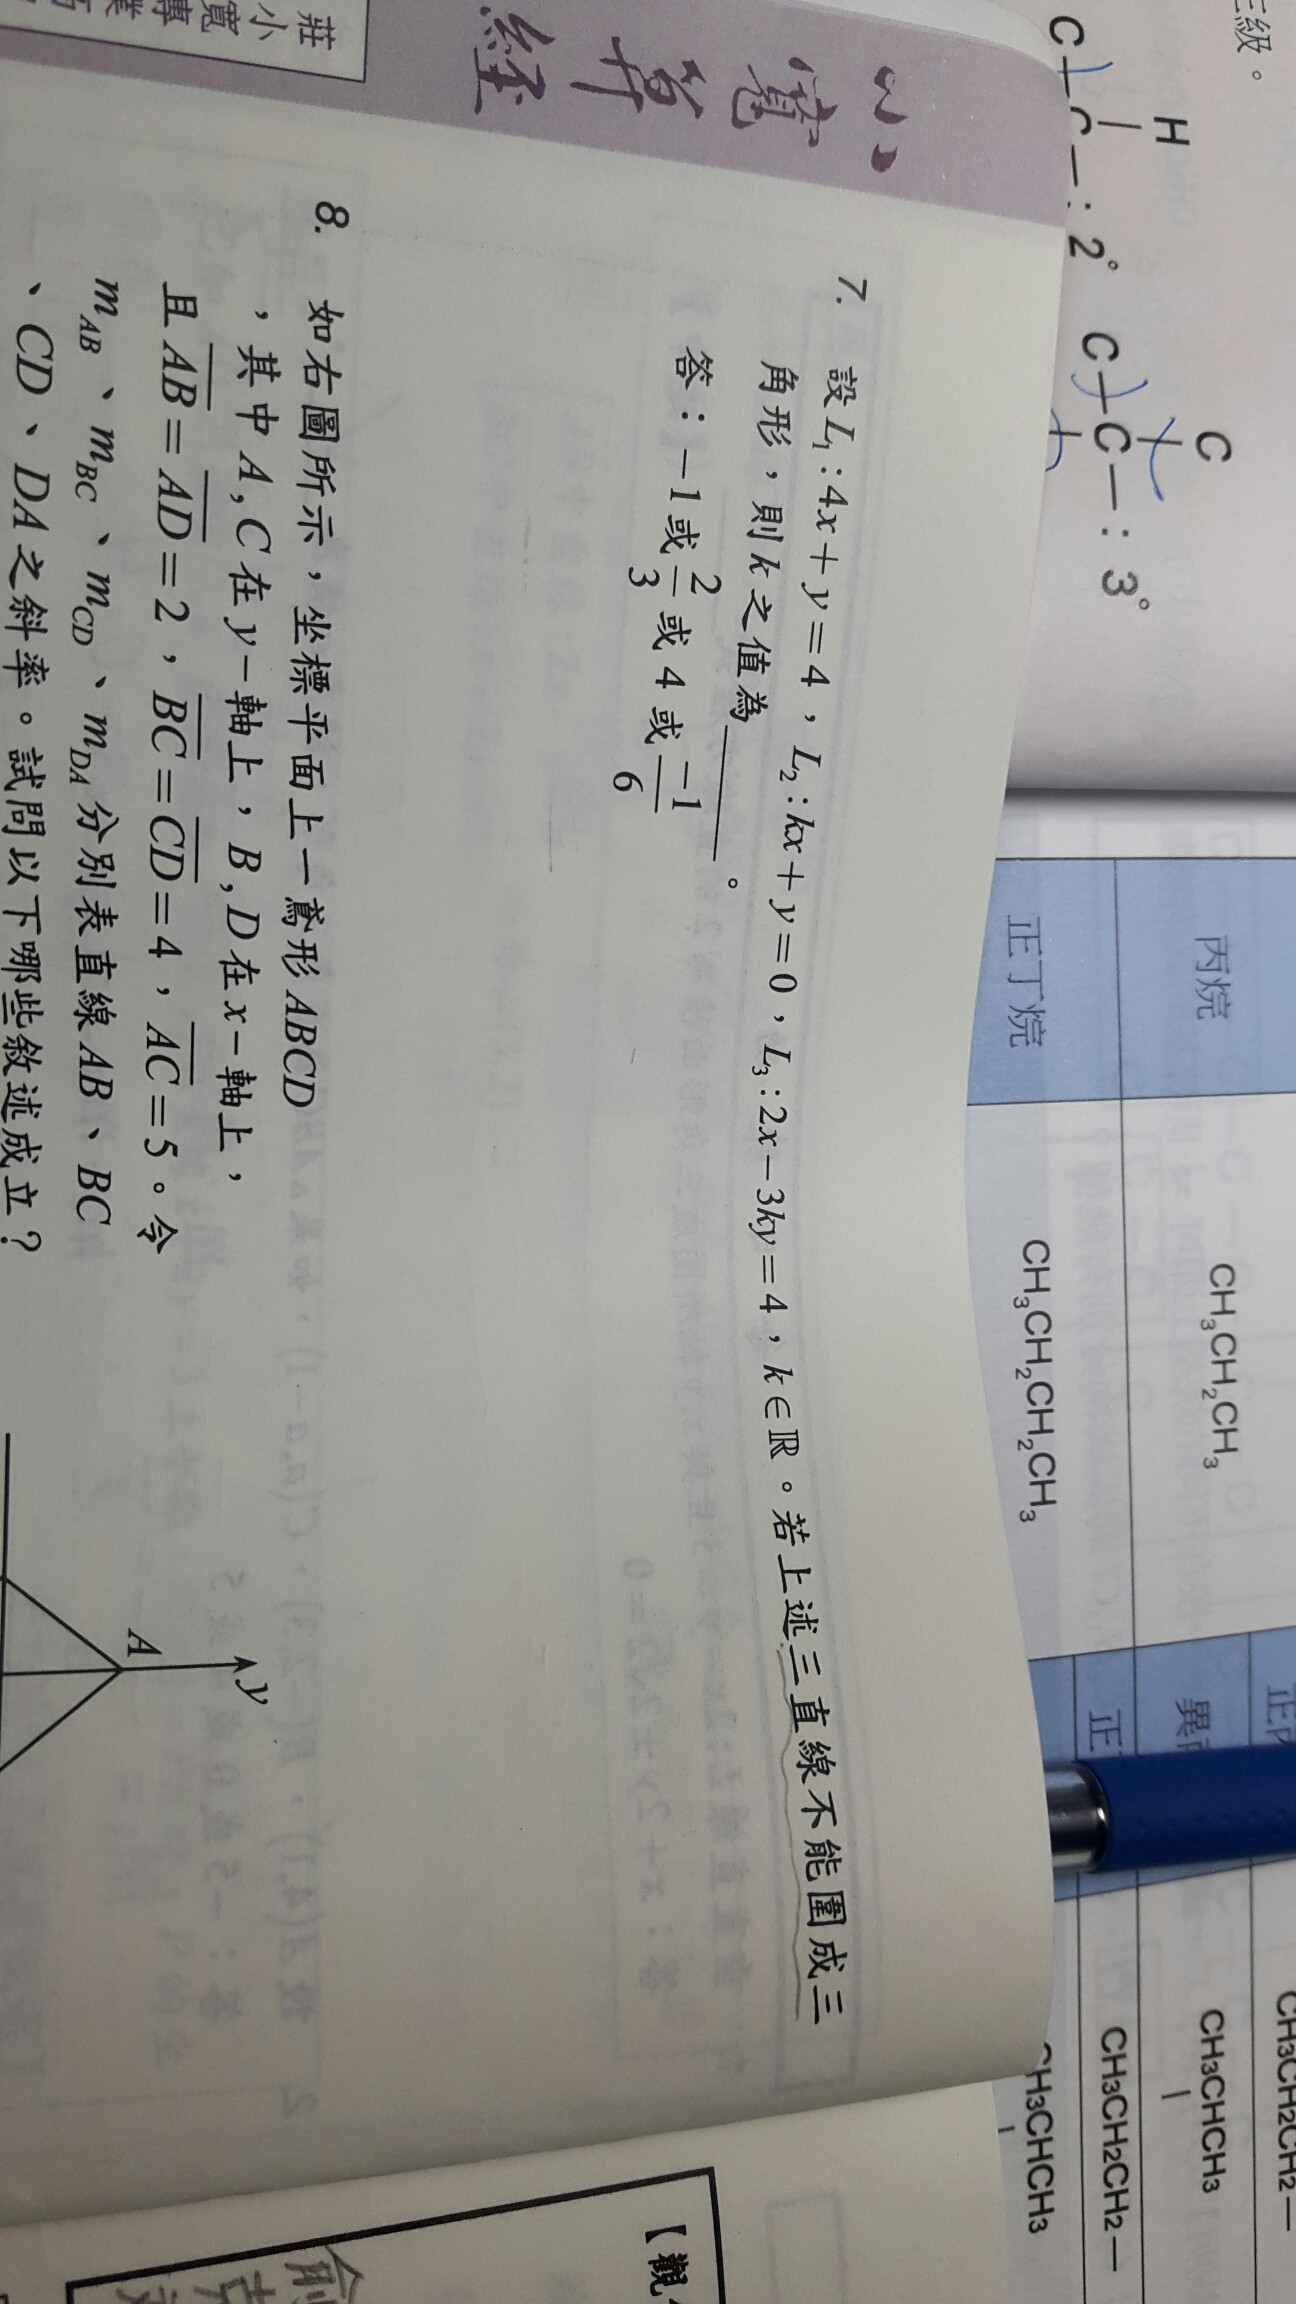 小寬算經
7. 設L₁:4x+y=4，L₂:kx+y=0，L₃:2x−3ky=4，k∈ℝ。若上述三直線不能圍成三
角形，則k之值為______。
答：−1或2/3或4或−1/6
8. 如右圖所示，坐標平面上一鳶形ABCD
，其中A,C在y−軸上，B,D在x−軸上，
且AB=AD=2，BC=CD=4，AC=5。令
m_AB、m_BC、m_CD、m_DA分別表直線AB、BC
、CD、DA之斜率。試問以下哪些敘述成立？
A
y
三級。
H
C—C—: 2°
C
C—C—: 3°
丙烷
CH₃CH₂CH₃
正丁烷
CH₃CH₂CH₂CH₃
CH3CH2CH2—
CH3CHCH3
CH3CH2CH2—
CH3CHCH3
莊
小
寬
專
【觀